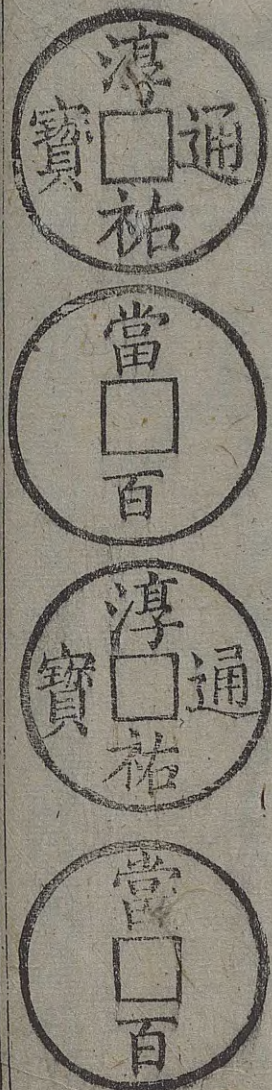 淳祐通寶
當百
淳祐通寶
當百